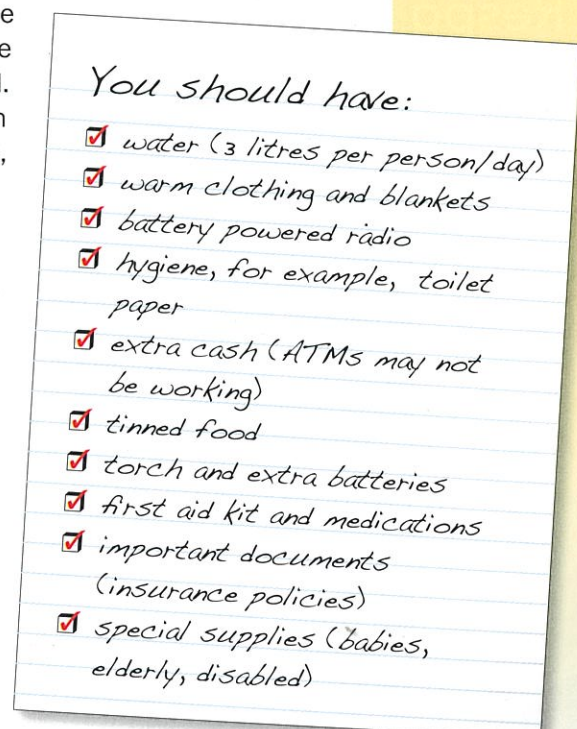 e
e
l.
n
,
You should have:
water (3 litres per person/day)
warm clothing and blankets
battery powered radio
hygiene, for example, toilet
paper
extra cash (ATMs may not
be working)
tinned food
torch and extra batteries
first aid kit and medications
important documents
(insurance policies)
special supplies (babies,
elderly, disabled)